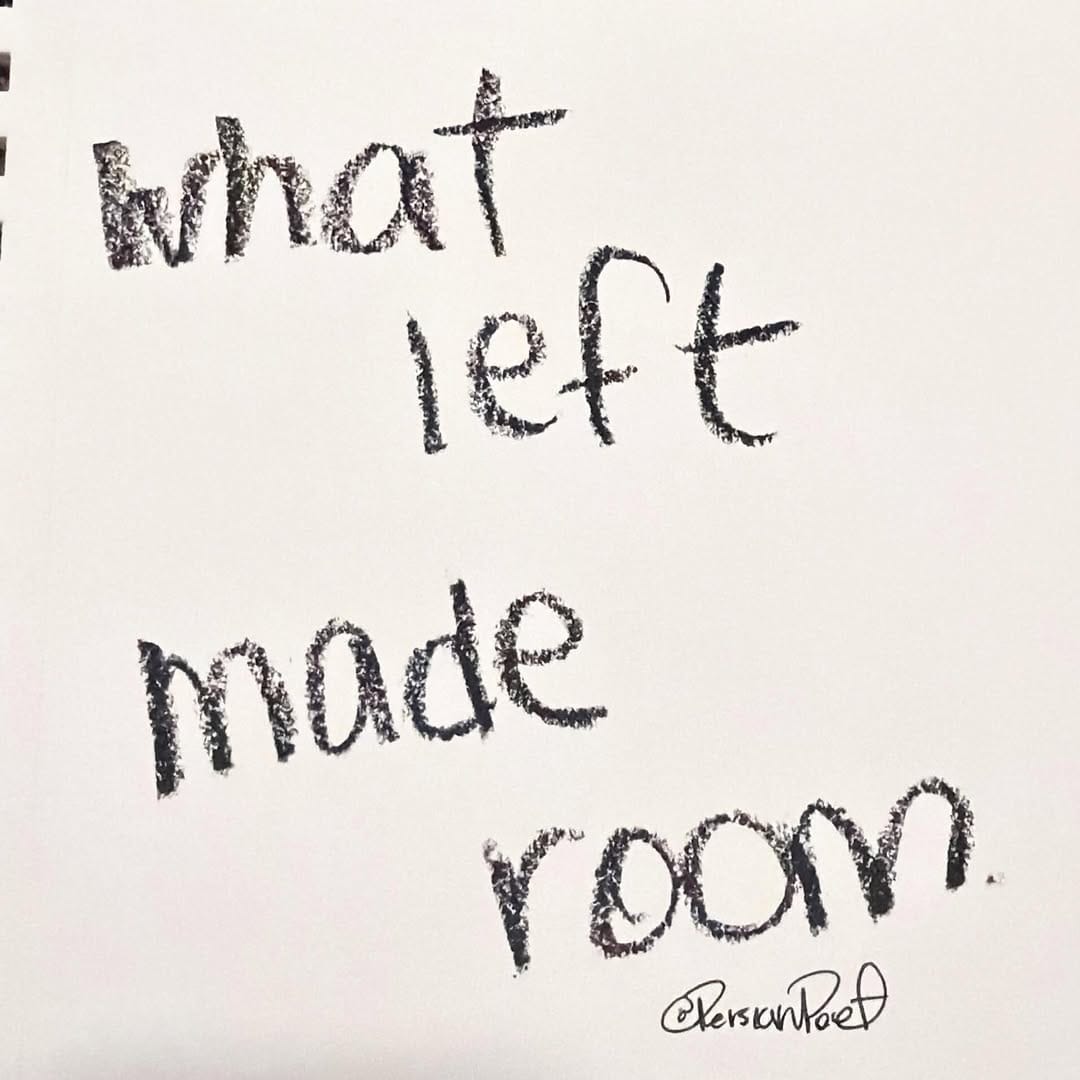 what
left
made
room.
@PersianPoet